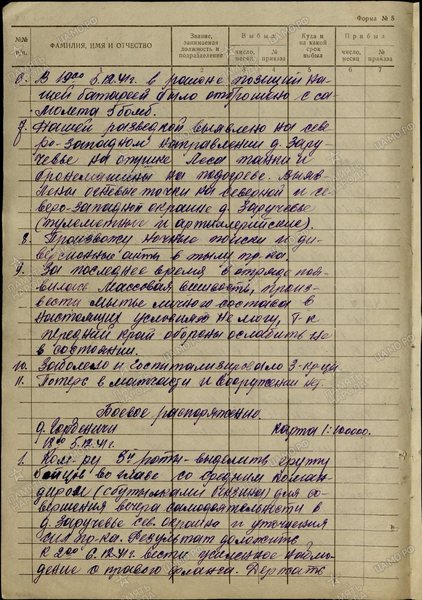 Форма № 5
№№ п.п.
ФАМИЛИЯ, ИМЯ И ОТЧЕСТВО
Звание, занимаемая должность и подразделение
Выбыл
число, месяц
№ приказа
Куда и на какой срок выбыл
Прибыл
число, месяц
№ приказа
1 2 3 4 5 6 7
6. В 19⁰⁰ 5.12.41г. в районе позиций на-
шей батареей было отброшено с са-
молета 5 бомб.
7. Нашей разведкой выявлено на севе-
ро-западном направлении д. Зару-
чевье на опушке леса танки и
бронемашины на подогреве. Выяв-
лены огневые точки на северной и се-
веро-западной окраине д. Заручевье
(пулеметные и артиллерийские).
8. Произвожу ночные поиски и ди-
версионные акты в тылу пр-ка.
9. За последнее время в отряде поя-
вилась массовая вшивость, произ-
вести мытье личного состава в
настоящих условиях не могу, т-к
передний край обороны ослабить не
в состоянии.
10. Заболело и госпитализировало 3 кр-ца
11. Потерь в матчасти и вооружении нет.
Боевое распоряжение.
д. Горденичи карта 1:100000.
18⁰⁰ 5.12.41г.
1. Ком-ру 3й роты - выделить группу
бойцов во главе со средним коман-
диром (с бутылками бензина) для со-
вершения вечера самодеятельности в
д. Заручевье сев. окраина и уточнения
сил пр-ка. Результат доложить
к 2⁰⁰ 6.12.41г. вести усиленное наблю-
дение с правого фланга. Держать